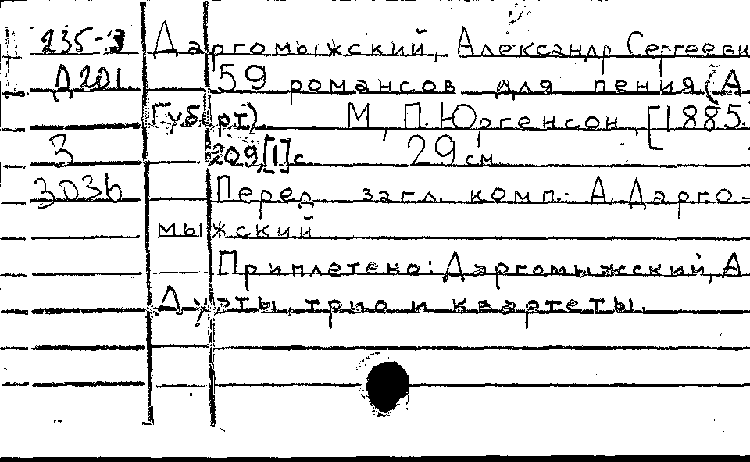 235-3 Даргомыжский, Александр Сергееви
Д201 59 романсов для пения (А
Губерт). М., П. Юргенсон, [1885.
3 209,[1]с. 29 см.
3036 Перед загл. комп.: А. Дарго-
мыжский
Приплетено: Даргомыжский, А
Дуэты, трио и квартеты.